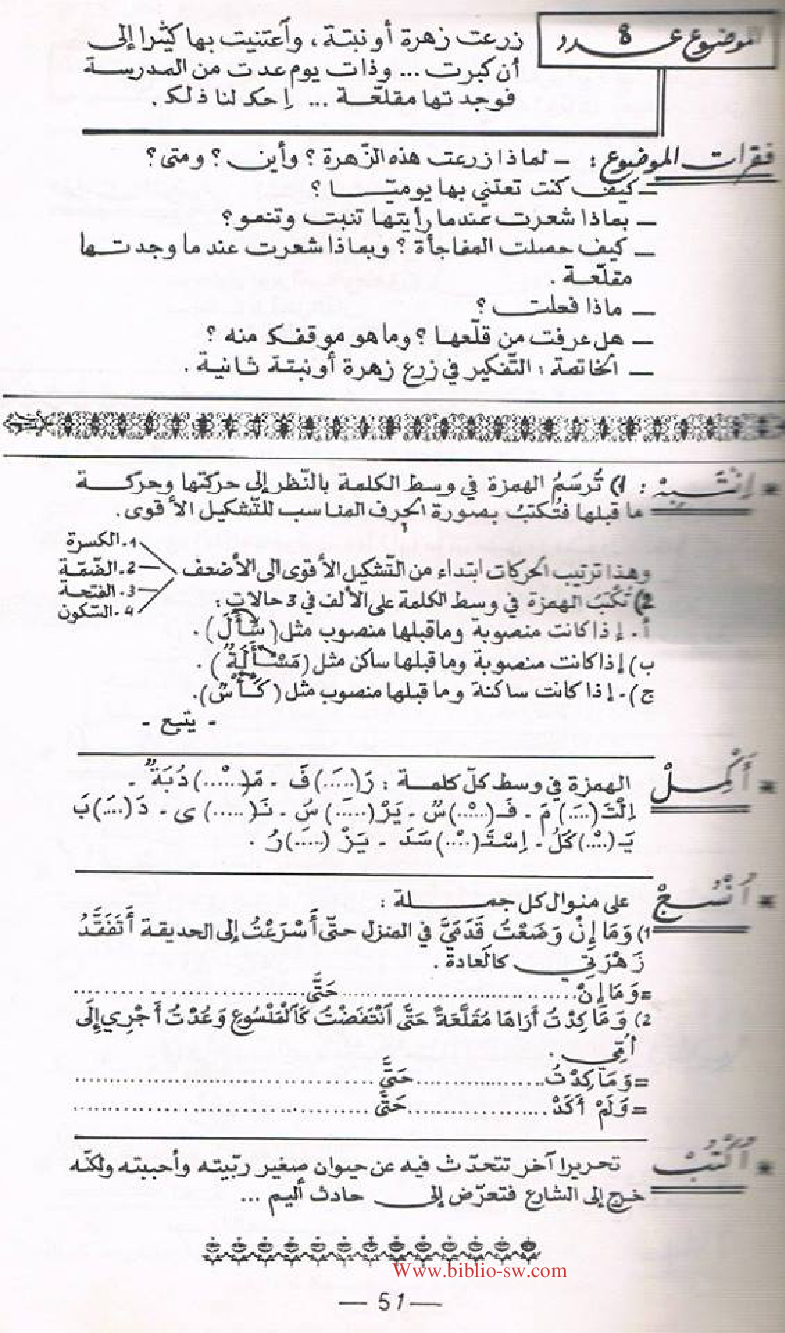 الموضوع عدد 8
زرعت زهرة أو نبتة، وآعتنيت بها كثيرا إلى
أن كبرت ... وذات يوم عدت من المدرسة
فوجدتها مقلّعة ... إحك لنا ذلك.
فقرات الموضوع: - لماذا زرعت هذه الزهرة؟ وأين؟ ومتى؟
- كيف كنت تعتني بها يوميّا؟
- بماذا شعرت عندما رأيتها تنبت وتنمو؟
- كيف حصلت المفاجأة؟ وبماذا شعرت عندما وجدتها
مقلّعة.
- ماذا فعلت؟
- هل عرفت من قلّعها؟ وما هو موقفك منه؟
- الخاتمة: التّفكير في زرع زهرة أو نبتة ثانية.
* اِنْتَبِهْ: 1) تُرسَمُ الهمزة في وسط الكلمة بالنّظر إلى حركتها وحركة
ما قبلها فتُكتبُ بصورة الحرف المناسب للتّشكيل الأقوى.
وهذا ترتيب الحركات ابتداء من التّشكيل الأقوى الى الأضعف
1. الكسرة
2. الضّمّة
3. الفتحة
4. السّكون
2) تُكتبُ الهمزة في وسط الكلمة على الألف في 3 حالاتٍ:
أ. إذا كانت منصوبة وما قبلها منصوب مثل (سَأَلَ).
ب) إذا كانت منصوبة وما قبلها ساكن مثل (مَسْأَلَةٌ).
ج). إذا كانت ساكنة وما قبلها منصوب مثل (كَأْسٌ).
- يتبع -
* أَكْمِلْ الهمزة في وسط كلّ كلمة: رَ(.....)فَ - مَ(.....)دُبَةٌ -
اِلْتَ(.....)مَ - فَـ(.....)سٌ - يَرْ(.....)سُ - نَـ(.....)ى - دَ(.....)بَ
يَـ(.....)كُلُ - اِسْتَـ(.....)سَدَ - يَزْ(.....)رُ.
* اُنْسُجْ على منوال كل جملة:
1) وَمَا إِنْ وَضَعْتُ قَدَمَيَّ في المنزل حتّى أَسْرَعْتُ إلى الحديقة أَتَفَقَّدُ
زَهْرَتِي كالعادة.
= وَمَا إِنْ..............................حَتَّى..............................
2) وَمَا كِدْتُ أَرَاهَا مُقَلَّعَةً حَتَّى آنْتَفَضْتُ كَالْمَلْسُوعِ وَعُدْتُ أَجْرِي إِلَى
أُمِّي.
= وَمَا كِدْتُ....................حَتَّى..............................
= وَلَمْ أَكَدْ....................حَتَّى..............................
* اُكْتُبْ تحريرا آخر تتحدّث فيه عن حيوان صغير ربّيته وأحببته ولكنّه
خرج إلى الشارع فتعرّض إلى حادث أليم ...
Www.biblio-sw.com
— 51 —